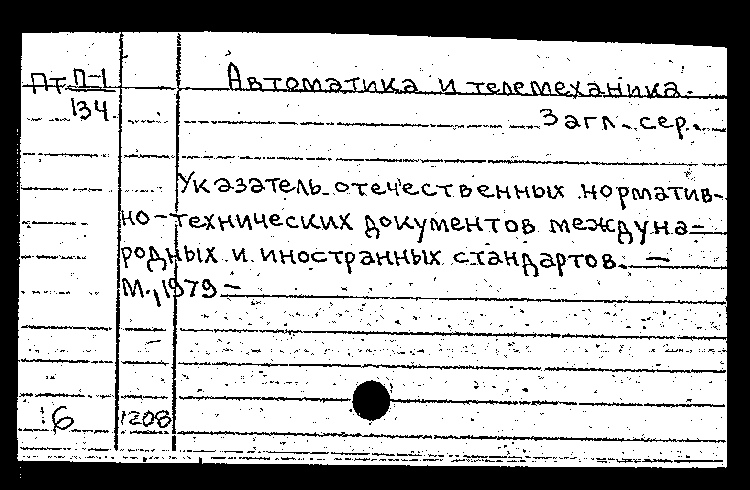 Пт П-1 Автоматика и телемеханика.
134. Загл. сер.
Указатель отечественных норматив-
но-технических документов междуна-
родных и иностранных стандартов. —
М., 1979 —
6 1208